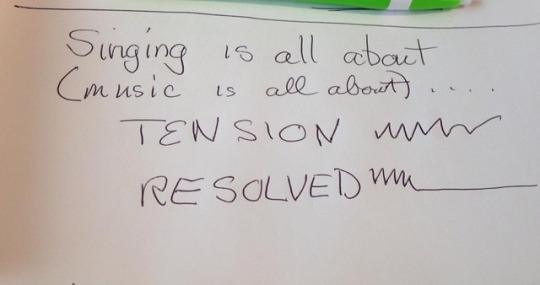 Singing is all about
(music is all about) ....
TENSION
RESOLVED